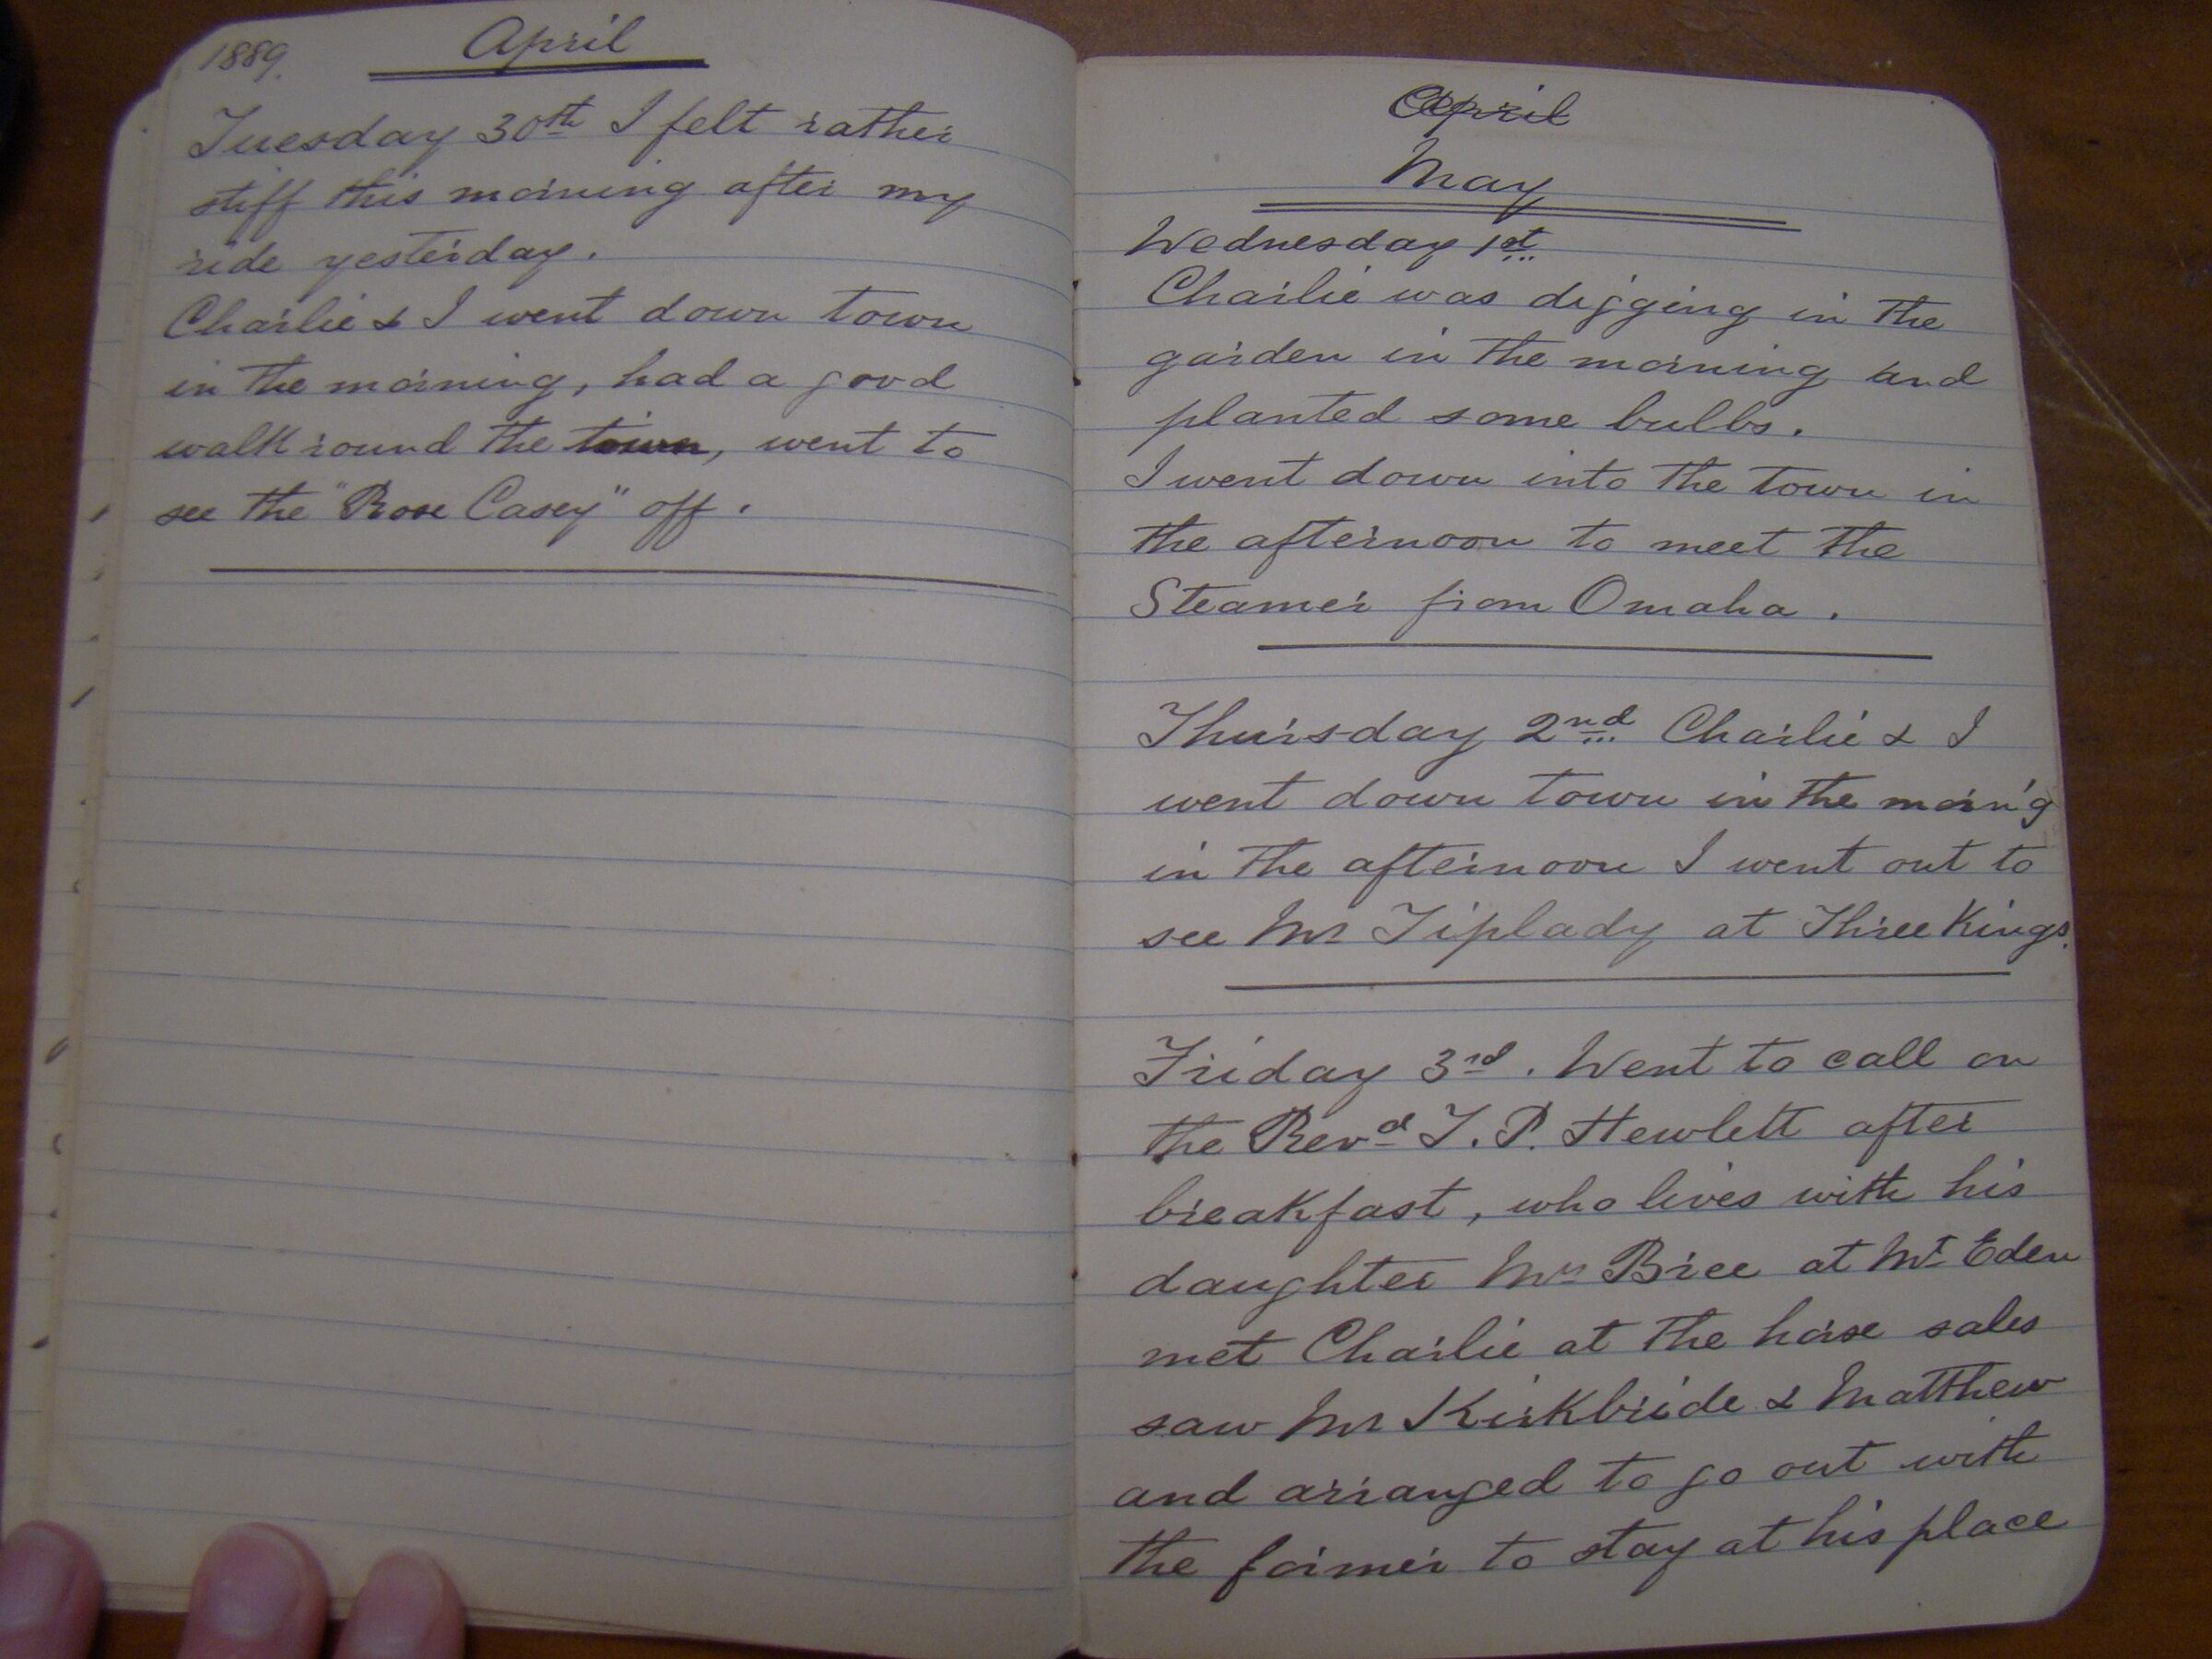 1889.
April
Tuesday 30th I felt rather
stiff this morning after my
ride yesterday.
Charlie & I went down town
in the morning, had a good
walk round the town, went to
see the "Rose Casey" off.
April
May
Wednesday 1st
Charlie was digging in the
garden in the morning and
planted some bulbs.
I went down into the town in
the afternoon to meet the
Steamer from Omaha.
Thursday 2nd Charlie & I
went down town in the morn'g
in the afternoon I went out to
see Mr Tiplady at Three Kings.
Friday 3rd. Went to call on
the Revd T. P. Hewlett after
breakfast, who lives with his
daughter Mrs Brice at Mt Eden
met Charlie at the horse sales
saw Mr Kirkbride & Matthew
and arranged to go out with
the former to stay at his place